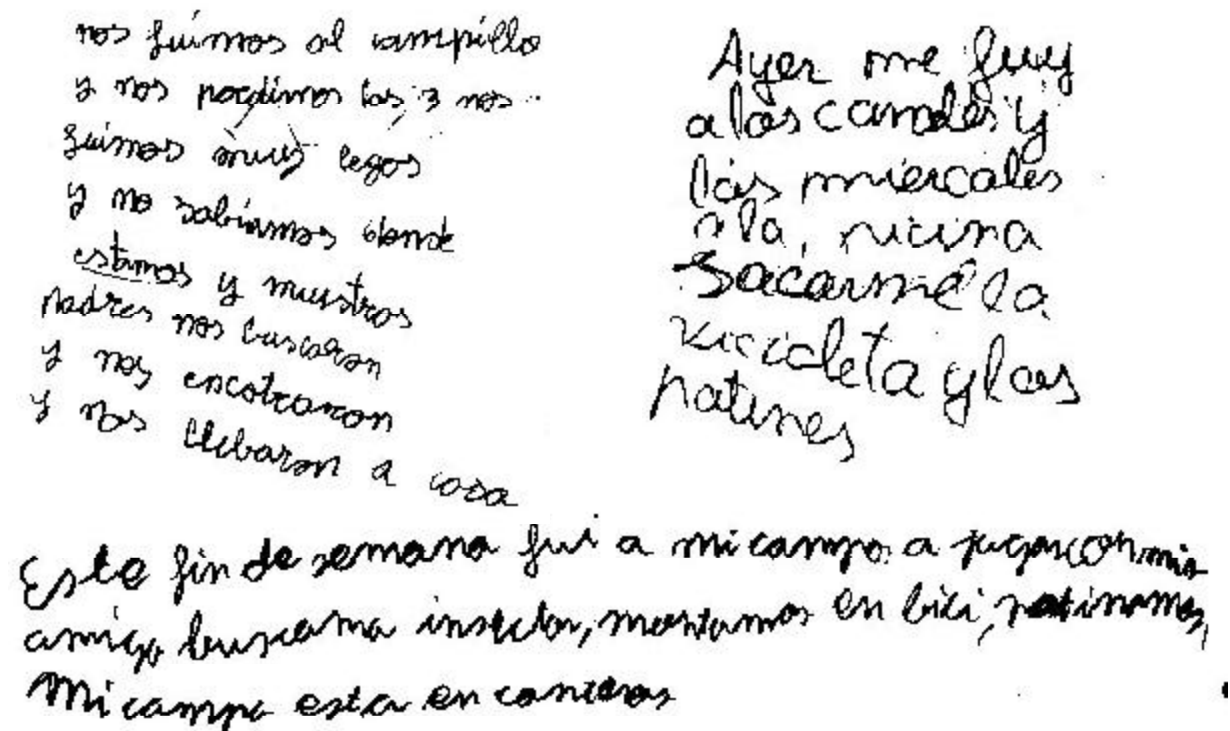 nos fuimos al campillo
y nos perdimos las 3 nos
fuimos muy legos
y no sabíamos donde
estamos y muestros
padres nos buscaron
y nos encotraron
y nos llebaron a casa
Ayer me fuy
a los y
los miercoles
a la, picina
sacarme la
vicicleta y los
patines
Este fin de semana fui a mi campo a jugar con mis
amigo buscama insectos, montamos en bici, patinamos,
Mi campo esta en